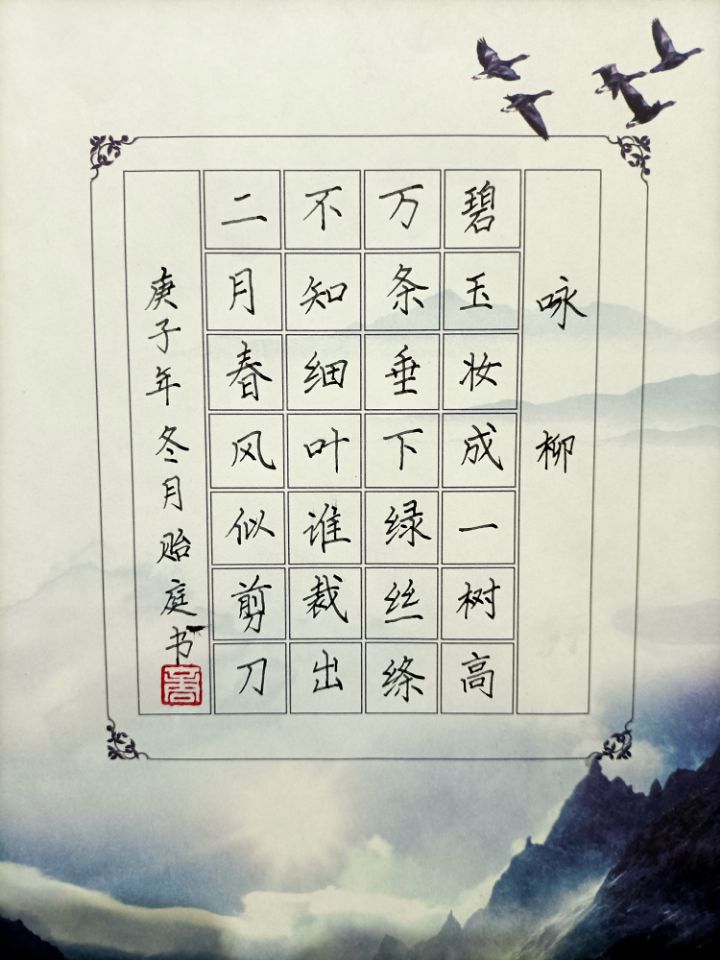 咏柳
碧玉妆成一树高
万条垂下绿丝绦
不知细叶谁裁出
二月春风似剪刀
庚子年冬月贻庭书